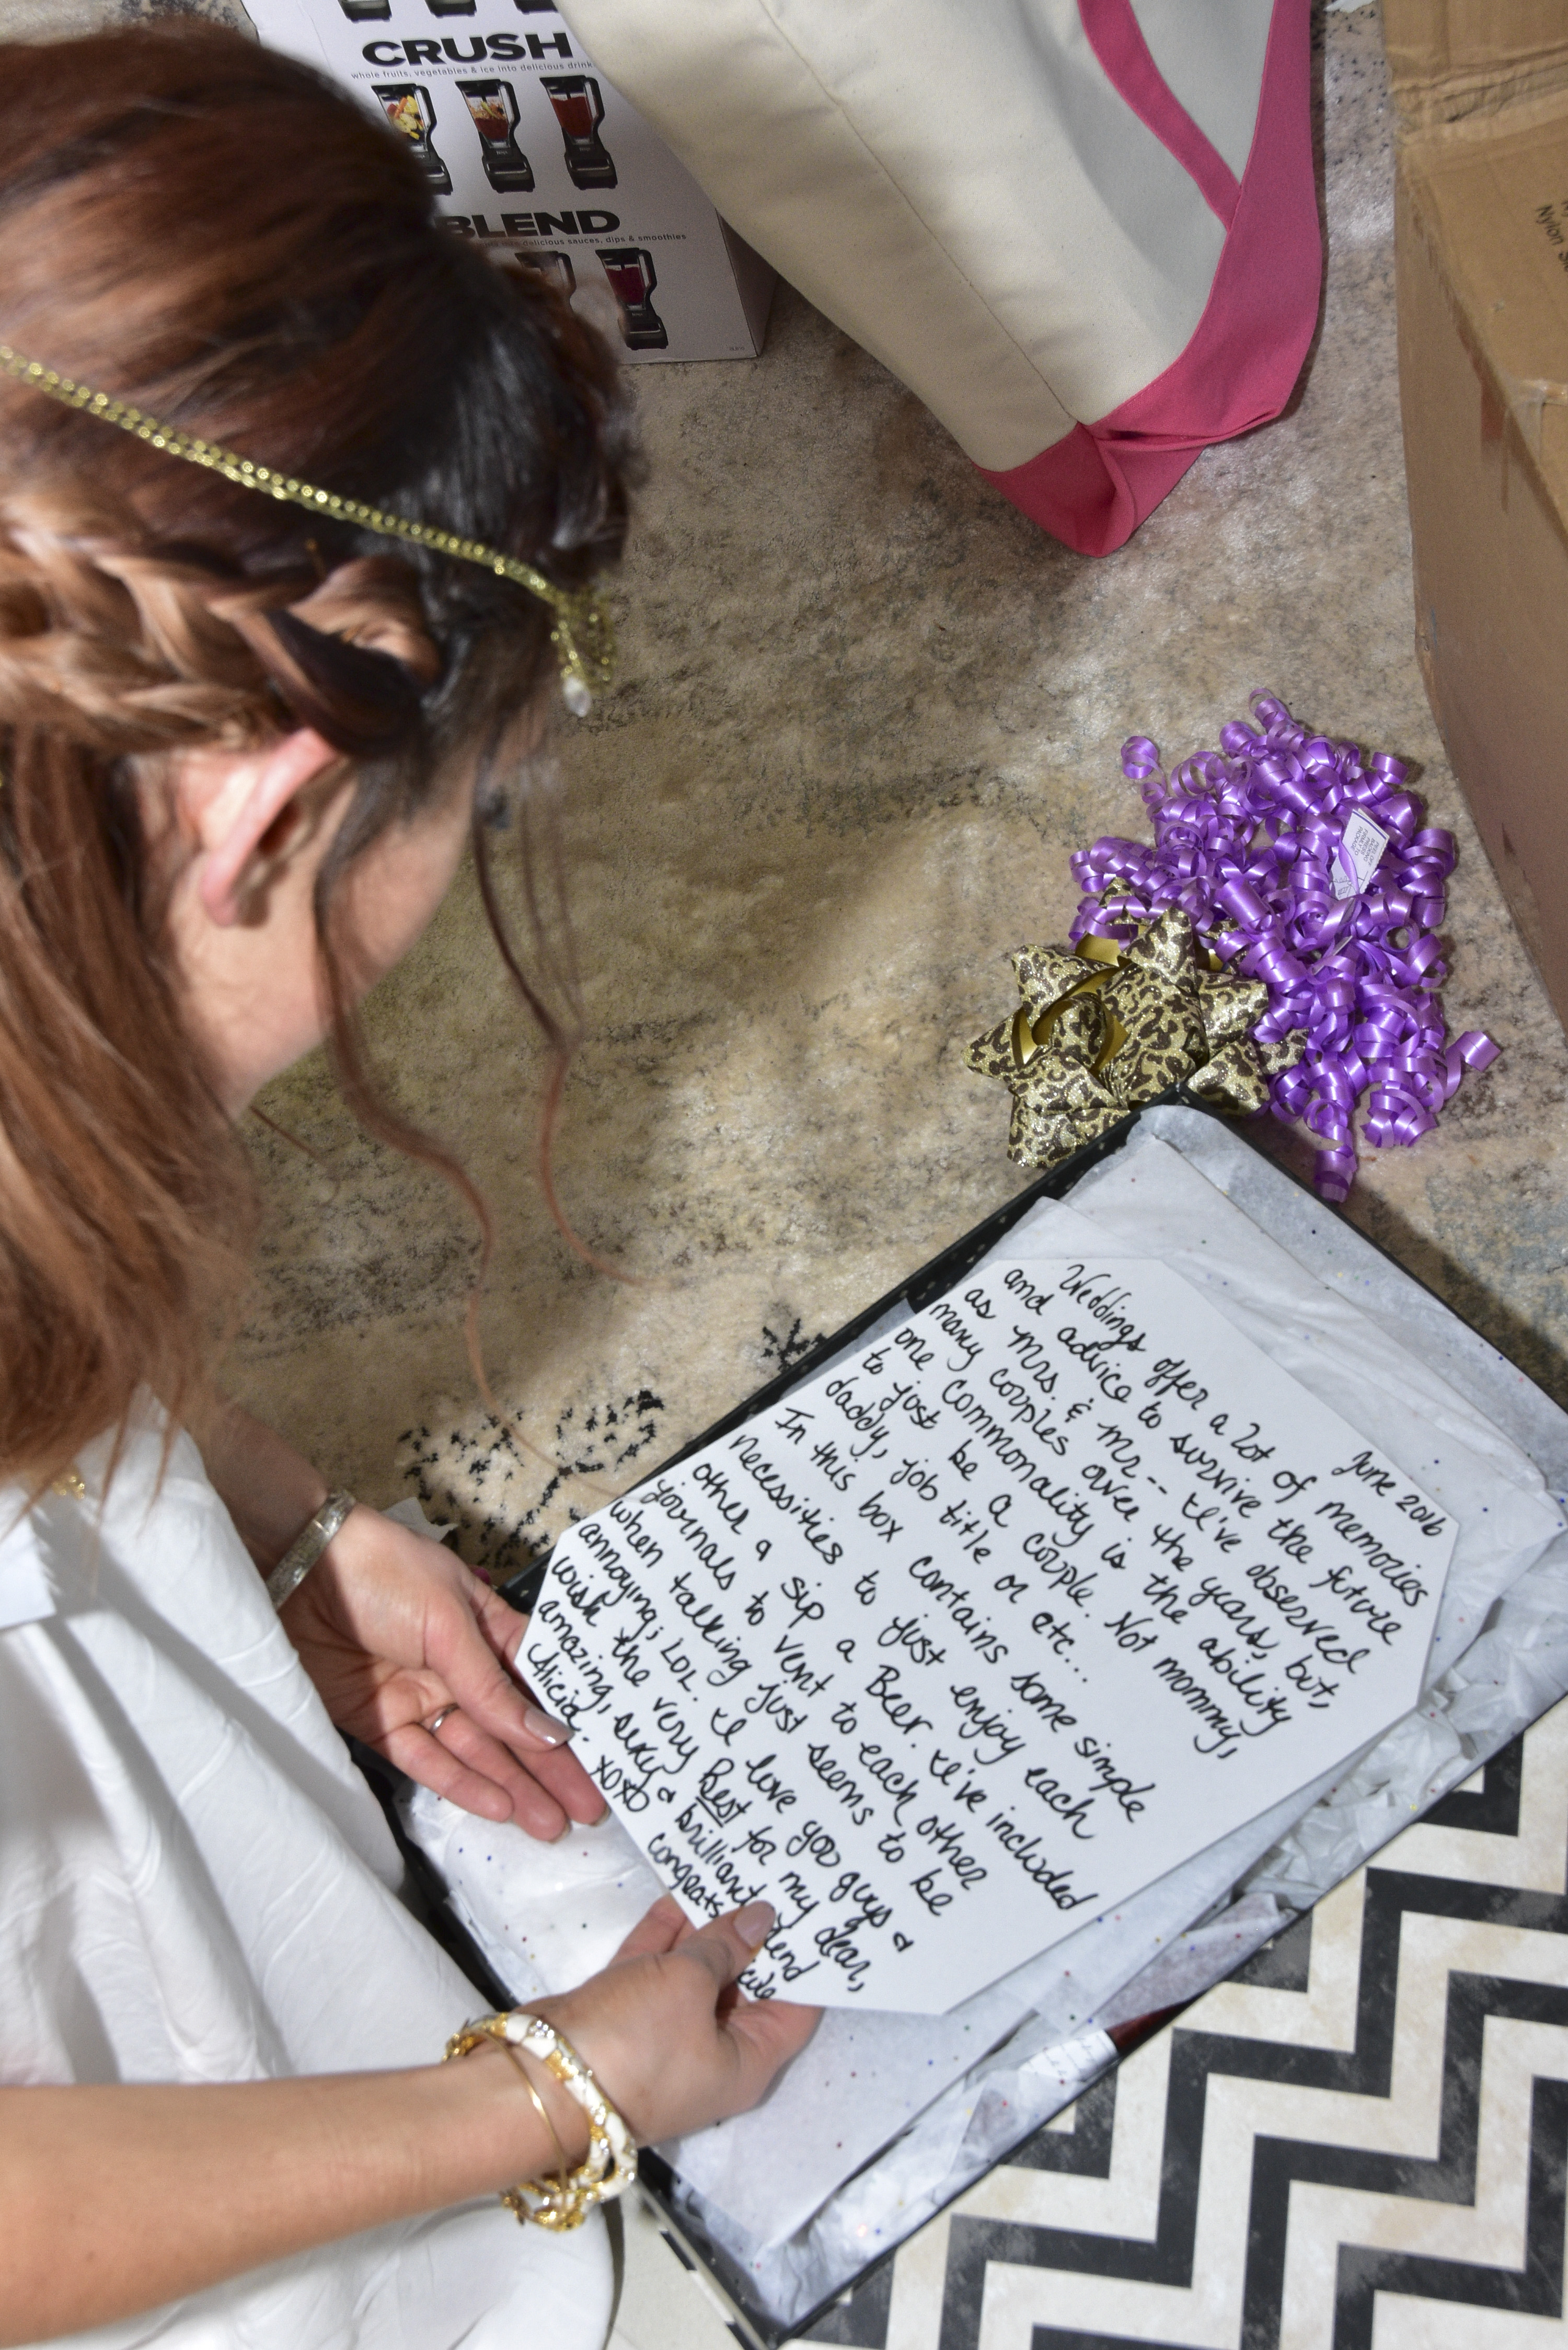 CRUSH
whole fruits, vegetables & ice into delicious drink
BLEND
delicious sauces, dips & smoothies
Nylon
June 2016
Weddings offer a lot of memories
and advice to survive the future
as Mrs. & Mr -- I've observed
many couples over the years, but,
one commonality is the ability
to just be a couple. Not mommy,
daddy, job title or etc...
In this box contains some simple
necessities to just enjoy each
other a sip a Beer. I've included
journals to vent to each other
when talking just seems to be
annoying; LOL. I love you guys &
wish the very Best for my dear,
amazing, sexy & brilliant
Alicia. XOXO
congrats